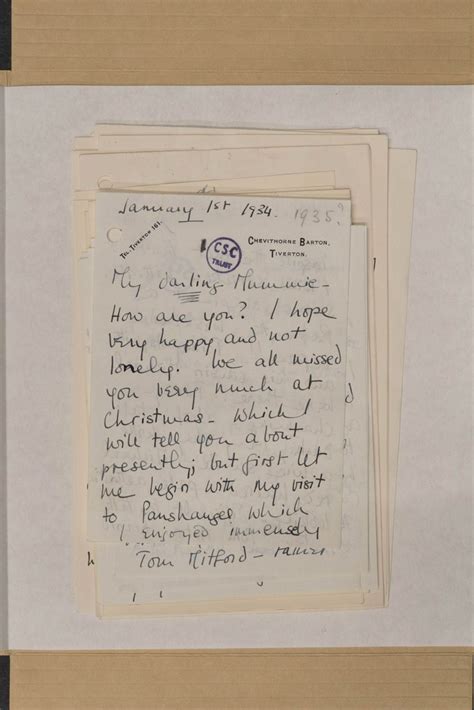 January 1st 1934. 1935?
TEL. TIVERTON 161.
CSC
TRUST
CHEVITHORNE BARTON.
TIVERTON.
My darling Mummie -
How are you? I hope
very happy and not
lonely. We all missed
you very much at
Christmas - which I
will tell you about
presently, but first let
me begin with my visit
to Panshanger which
I enjoyed immensely
Tom Mitford -